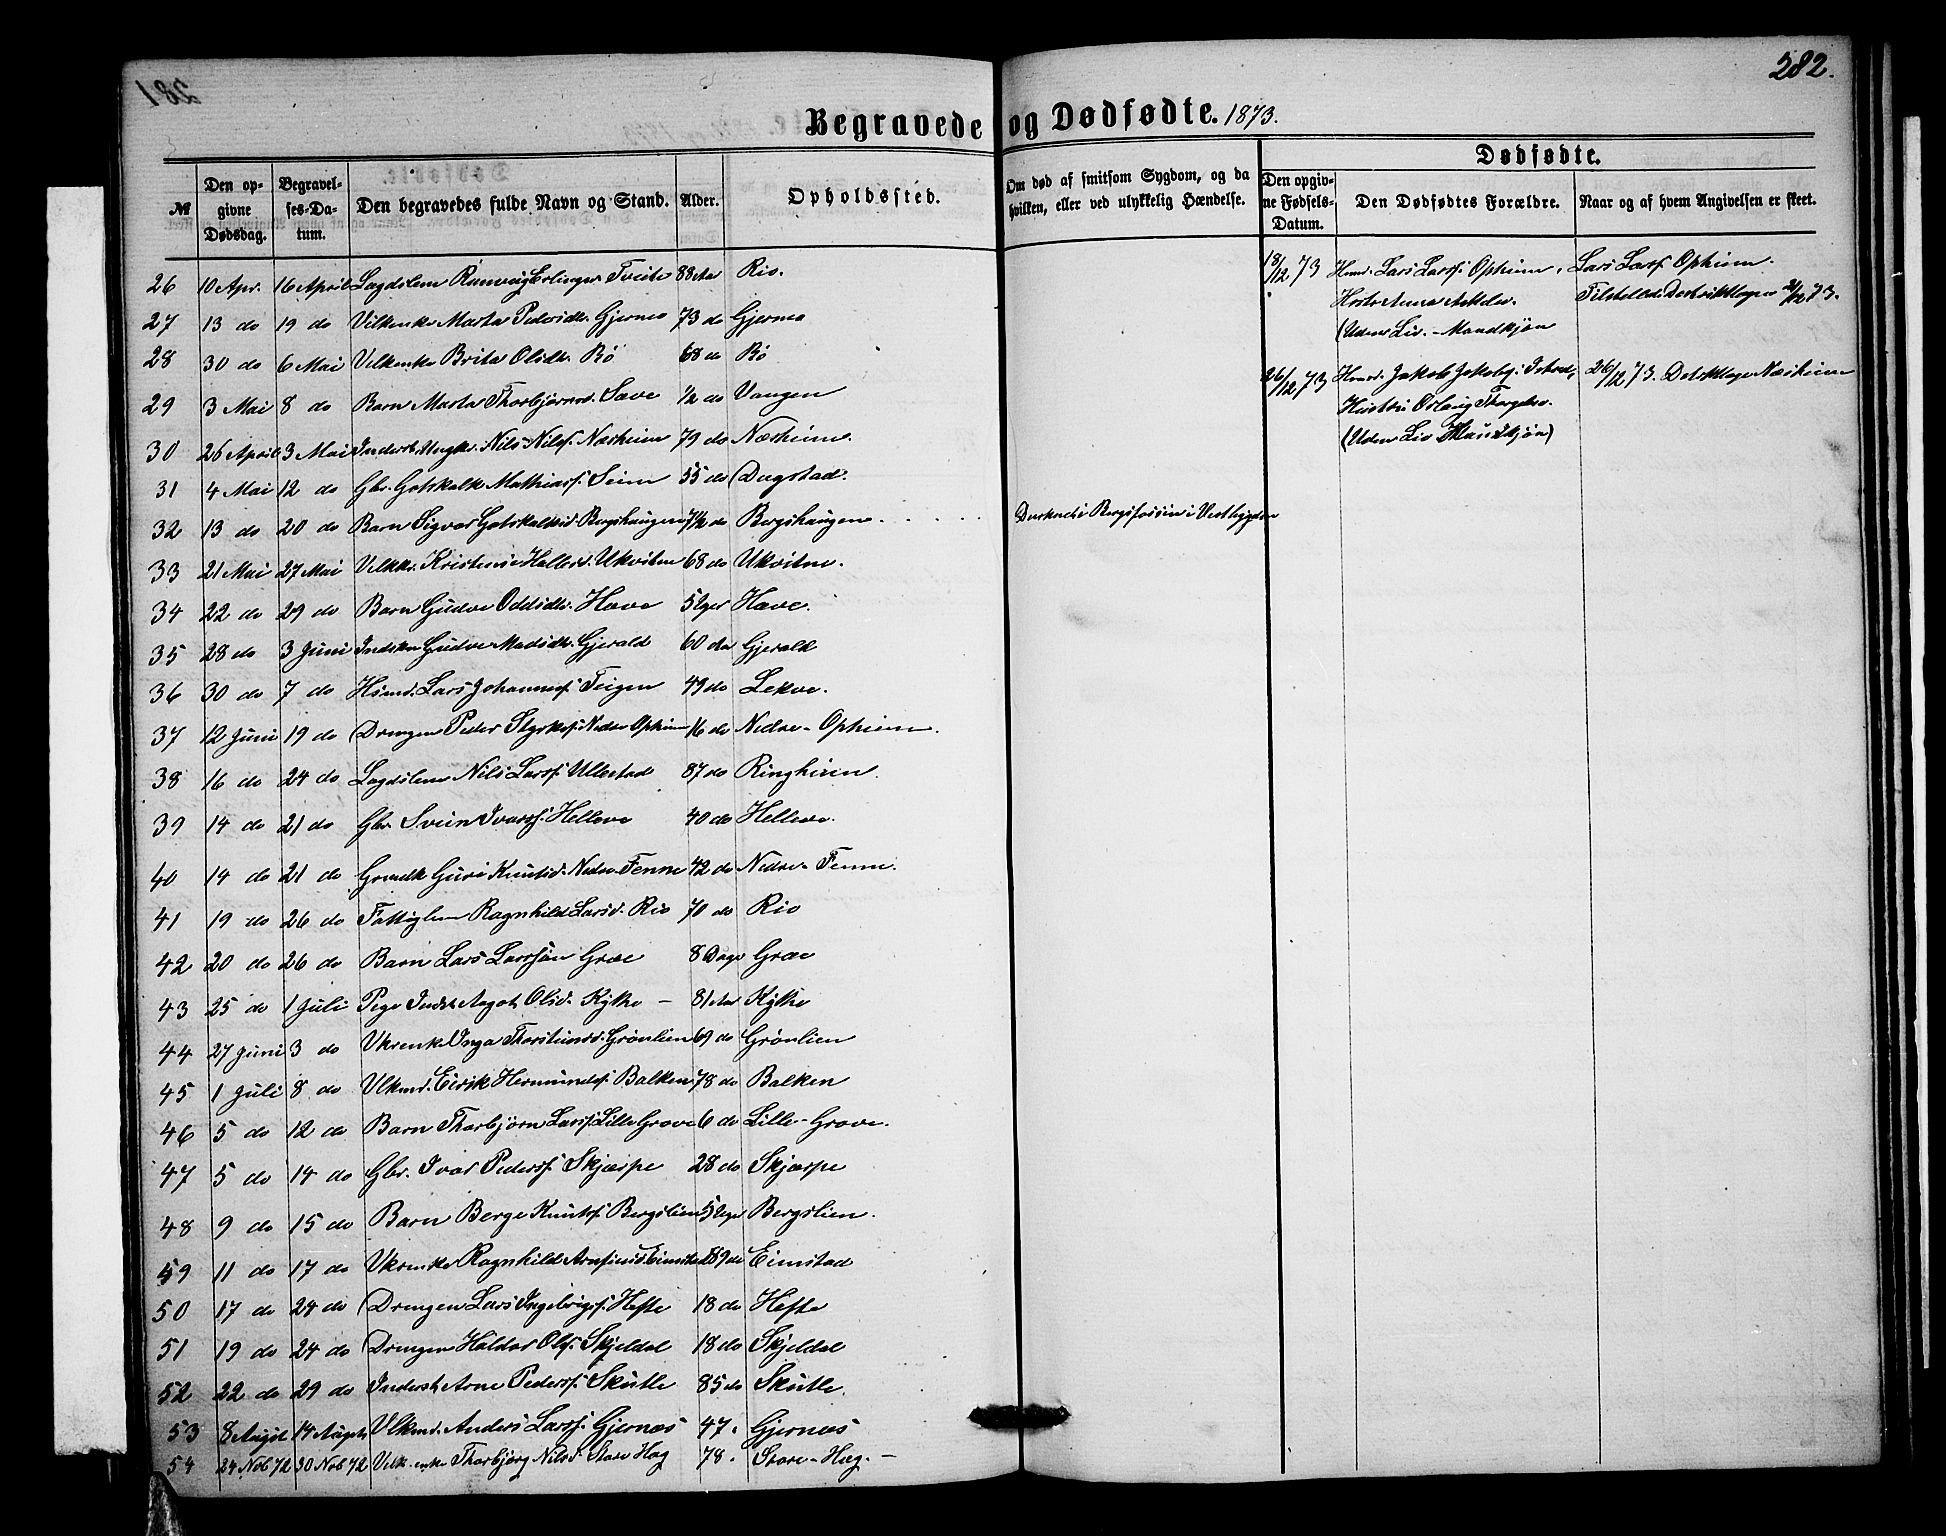 281
282.
Begravede og Dødfødte. 1873.
Dødfødte.
№ Den opgivne Dødsdag. Begravelses-Datum. Den begravedes fulde Navn og Stand. Alder. Opholdssted. Om død af smitsom Sygdom, og da hvilken, eller ved ulykkelig Hændelse. Den opgivne Fødsels-Datum. Den Dødfødtes Forældre. Naar og af hvem Angivelsen er skeet.
26 10 Apr. 16 April Lægdslem Ranveig Erlingsd. Tveite 88 Aar Rio.
27 13 do 19 do Vilkenke Marta Pedersdtr. Gjernes 73 do Gjernes
28 30 do 6 Mai Vilkenke Brita Olsdtr. Rö 68 do Rö
29 3 Mai 8 do Barn Marta Thorbjørnsd. Sæve 1/2 do Vangen
30 26 April 3 Mai Inderst Ungkr. Nils Nilss. Næsheim 79 do Næsheim.
31 4 Mai 12 do Gbr. Gotskalk Mathiass. Seim 55 do Dugstad.
32 13 do 20 do Barn Sigvor Gotskalksd. Bergshaugene 7 1/2 do Bergshaugene. Druknet i Bergsfossen i Vestbygden
33 21 Mai 27 Mai Velkke. Kristense Hallesd. Ukvitne 68 do Ukvitne.
34 22 do 29 do Barn Gudve Oddsdtr. Hæve 5 Uger Hæve.
35 28 do 3 Juni Indske Gudve Madsdtr. Gjerald 60 Aar Gjerald
36 30 do 7 do Hsmd. Lars Johanness. Teigen 49 do Lekve.
37 12 Juni 19 do Drengen Peder Styrkss. Nedre Opheim 16 do Nedre-Opheim.
38 16 do 24 do Lægdslem Nils Larss. Ullestad 87 do Ringheim.
39 14 do 21 do Gbr. Svein Ivarss. Helleve 40 do Helleve.
40 14 do 21 do Grmdk Guri Knutsd. Nedre Fenne 42 do Nedre-Fenne.
41 19 do 26 do Fattiglem Ragnhild Larsd. Rio 70 do Rio
42 20 do 26 do Barn Lars Larssøn Græe 8 Dage Græe
43 25 do 1 Juli Pige Indst Aagot Olsd. Kytke — 81 Aar Kytke
44 27 Juni 3 do Vkrenke Inga Thorsteinsd. Grönlien 69 do Grönlien
45 1 Juli 8 do Vlkmd. Eirik Hermundss. Balken 78 do Balken
46 5 do 12 do Barn Thorbjørn Larss. Lille Grove 6 do Lille-Grove.
47 5 do 14 do Gbr. Ivar Pederss. Skjerpe 28 do Skjerpe
48 9 do 15 do Barn Berge Knutss. Bergslien 5 Uger Bergslien.
59 11 do 17 do Vkrenke Ragnhild Arnfinsd. Eimstad 89 do Eimstad
50 17 do 24 do Drengen Lars Ingebrigts. Hefte 18 do Hefte
51 19 do 24 do Drengen Haldor Olss. Skjeldal 18 do Skjeldal
52 22 do 29 do Inderst Arne Pederss. Skutle 85 do Skutle.
53 8 Augst 14 Augst Vlkmd. Anders Larss. Gjernæs 47. Gjernæs
54 24 Nob 72 30 Nob 72 Velk. enke Thorbjørg Nilsd. Store Hæg 78. Store-Hæg. —
18/12 73 Hmd. Lars Larss. Opheim, Lars Larss. Opheim.
Hustr Anna Tilstelled 21/12 73.
(Uden Liv. - Mandkjøn
26/12 73 Hmd. Jakob Jakobs. 26/12 73. Næsheim
Hustru Oslaug
(Uden Liv Mandkjøn)